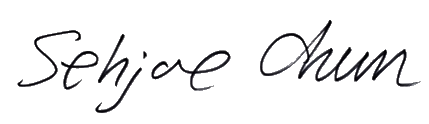 Sehjae Chun